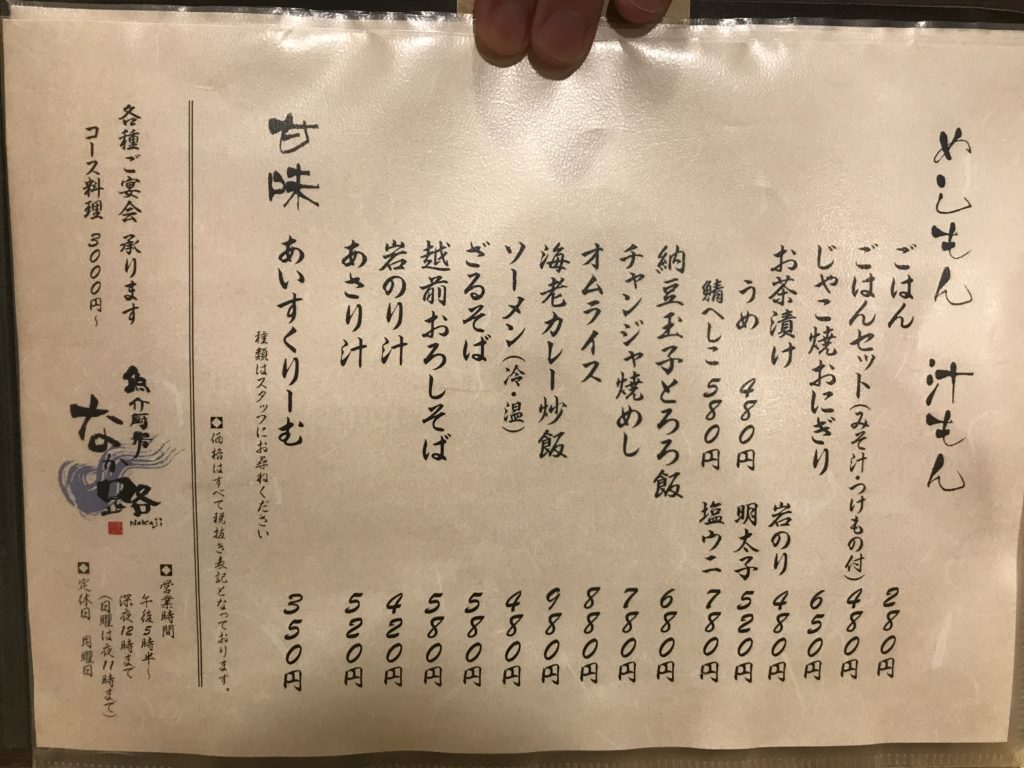 めしもん 汁もん
ごはん 280円
ごはんセット(みそ汁・つけもの付) 480円
じゃこ焼おにぎり 650円
お茶漬け 岩のり 480円
うめ 480円 明太子 520円
鯖へしこ 580円 塩ウニ 780円
納豆玉子とろろ飯 680円
チャンジャ焼めし 780円
オムライス 880円
海老カレー炒飯 980円
ソーメン(冷・温) 480円
ざるそば 580円
越前おろしそば 580円
岩のり汁 420円
あさり汁 520円
甘味
あいすくりーむ 350円
種類はスタッフにお尋ねください
◆価格はすべて税抜き表記となっております。
各種ご宴会 承ります
コース料理 3000円~
魚介厨房
なか路
Nakaji
◆営業時間
午後5時半~
深夜12時まで
(日曜は夜11時まで)
◆定休日 月曜日